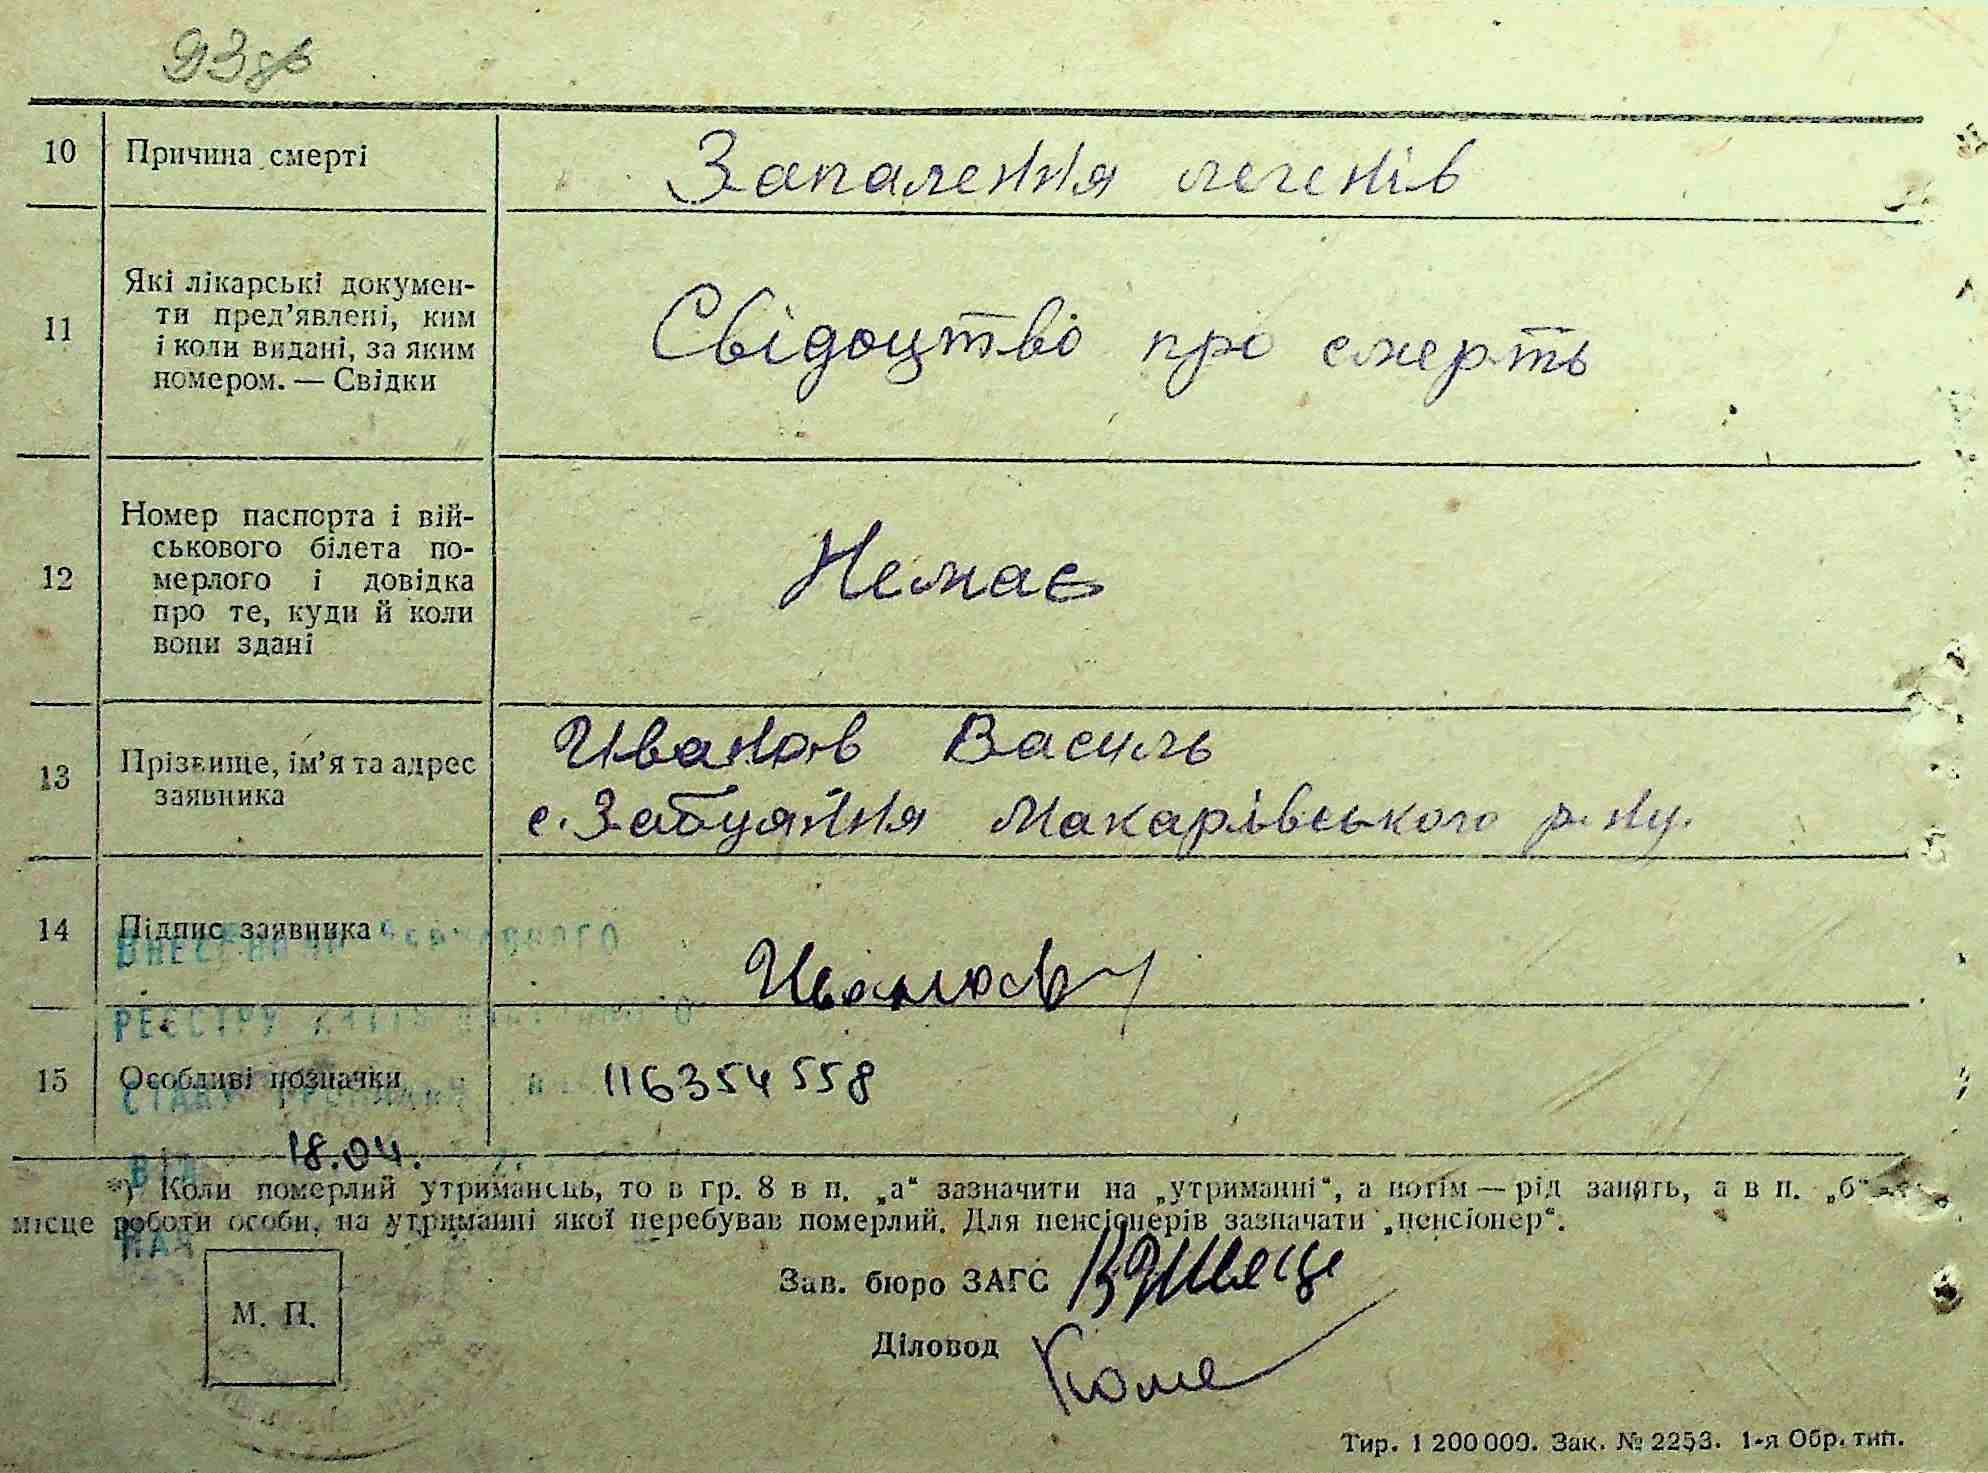 10 Причина смерті Запалення легенів
Які лікарські докумен-
ти пред'явлені, ким
11 і коли видані, за яким
номером. — Свідки
Свідоцтво про смерть
Номер паспорта і вій-
ськового білета по-
12 мерлого і довідка
про те, куди й коли
вони здані
Немає
13 Прізвище, ім'я та адрес
заявника
Иванов Василь
с. Забуяння Макарівського р-ну.
14 Підпис заявника
ВНЕСЕНО ДО ДЕРЖАВНОГО
Иванов
РЕЄСТРУ АКТІВ ЦИВІЛЬНОГО
15 Особливі позначки 116354558
СТАНУ ГРОМАДЯН
18.04.
ВІД
*) Коли померлий утриманець, то в гр. 8 в п. „а“ зазначити на „утриманні“, а потім — рід занять, а в п. „б“
місце роботи особи, на утриманні якої перебував померлий. Для пенсіонерів зазначати „пенсіонер“.
Зав. бюро ЗАГС
М. П.
Діловод
Тир. 1 200 000. Зак. № 2253. 1-я Обр. тип.